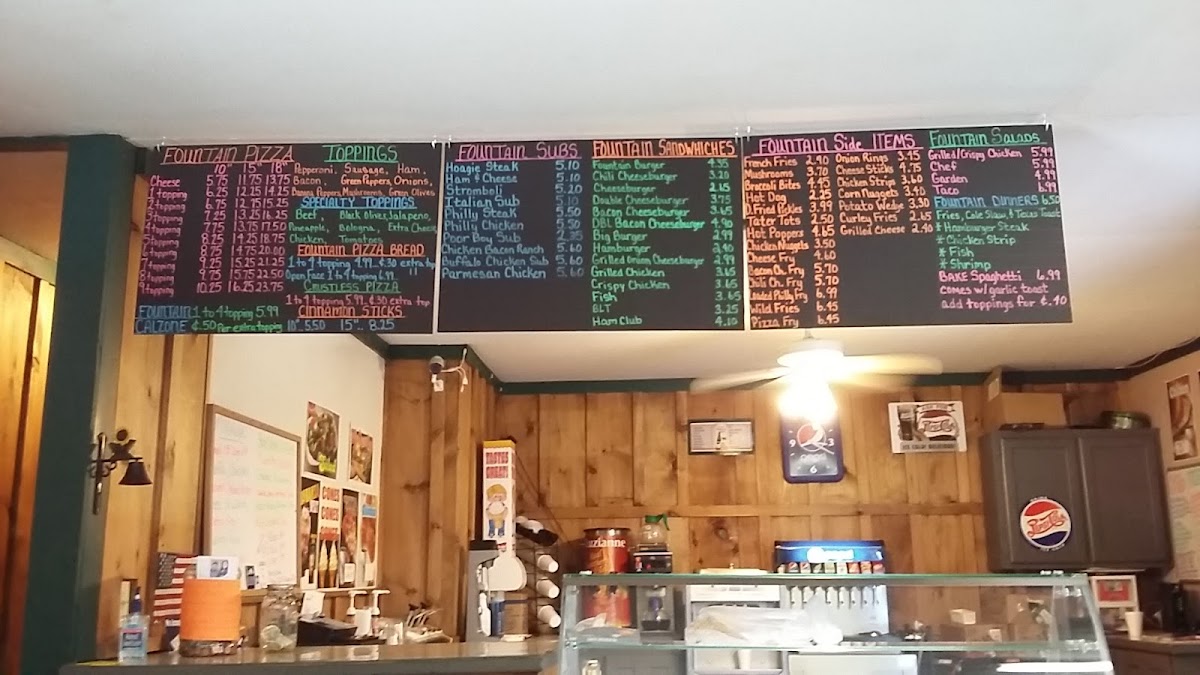 FOUNTAIN PIZZA
10" 15" 18"
Cheese 5.75 11.75 13.75
1 topping 6.25 12.25 14.25
2 topping 6.75 12.75 15.25
3 topping 7.25 13.25 16.25
4 topping 7.75 13.75 17.50
5 topping 8.25 14.25 18.75
6 topping 8.75 14.75 20.00
7 topping 9.25 15.25 21.25
8 topping 9.75 15.75 22.50
9 topping 10.25 16.25 23.75
FOUNTAIN 1 to 4 topping 5.99
CALZONE ¢.50 Per extra topping
TOPPINGS
Pepperoni, Sausage, Ham,
Bacon, Green Peppers, Onions,
Banana Peppers, Mushrooms, Green Olives
SPECIALTY TOPPINGS
Beef, Black Olives, Jalapeno,
Pineapple, Bologna, Extra Cheese
Chicken, Tomatoes
FOUNTAIN PIZZA BREAD
1 to 4 topping 4.99 ¢.30 extra top
Open Face 1 to 4 topping 6.99
CRUSTLESS PIZZA
1 to 4 topping 5.99, ¢.30 extra top
CINNAMON STICKS
10" 5.50 15" 8.25
FOUNTAIN SUBS
Hoagie Steak 5.10
Ham & Cheese 5.10
Stromboli 5.20
Italian Sub 5.10
Philly Steak 5.50
Philly Chicken 5.50
Poor Boy Sub
Chicken Bacon Ranch 5.60
Buffalo Chicken Sub 5.60
Parmesan Chicken 5.60
FOUNTAIN SANDWHICHES
Fountain Burger 4.35
Chili Cheeseburger 3.20
Cheeseburger 2.65
Double Cheeseburger 3.75
Bacon Cheeseburger 3.65
DBL Bacon Cheeseburger 4.90
Big Burger 2.99
Hamburger 2.40
Grilled Cheeseburger 2.99
Grilled Chicken 3.65
Crispy Chicken 3.65
Fish 3.65
BLT 3.25
Ham Club 4.10
FOUNTAIN Side ITEMS
French Fries 2.40
Mushrooms 3.70
Broccoli Bites 4.45
Hot Dog 2.25
D.Fried Pickles 3.99
Tater Tots 2.50
Hot Poppers 4.65
Chicken Nuggets 3.50
Cheese Fry 4.60
Bacon Ch. Fry 5.70
Chili Ch. Fry 5.70
Loaded Philly Fry 6.99
Wild Fries 6.45
Pizza Fry 6.45
Onion Rings 3.45
Cheese Sticks 4.75
Chicken Strips 3.60
Corn Nuggets 3.40
Potato Wedge 3.30
Curley Fries 2.65
Grilled Cheese 2.40
FOUNTAIN SALADS
Grilled/Crispy Chicken 5.99
Chef 5.99
Garden 4.99
Taco 6.99
FOUNTAIN DINNERS 6.50
Fries, Cole Slaw, & Texas Toast
* Hamburger Steak
* Chicken Strip
* Fish
* Shrimp
BAKE Spaghetti 6.99
comes w/ garlic toast
add toppings for ¢.40
TASTES
GREAT!
CONES
CONES
CONES
Luzianne
9 3
pepsi
6
Pepsi-Cola
Pepsi-Cola